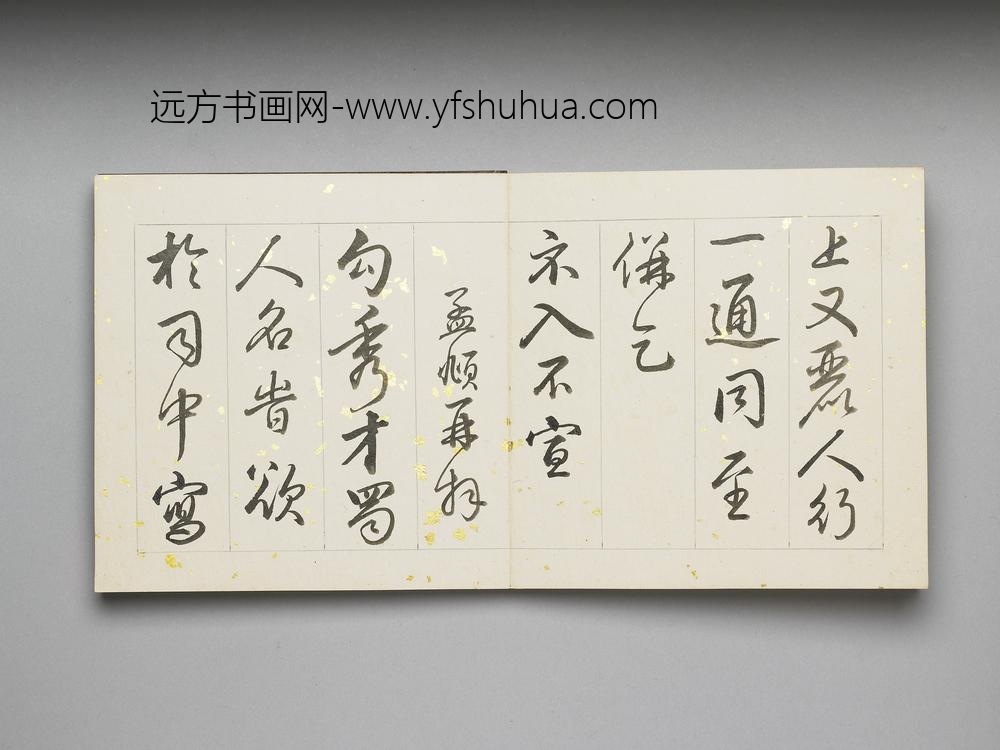 远方书画网-www.yfshuhua.com
上又麗人行
一通同至
併乞
示入不宣
孟頫再拜
勾秀才蜀
人名昔欲
於司中寫